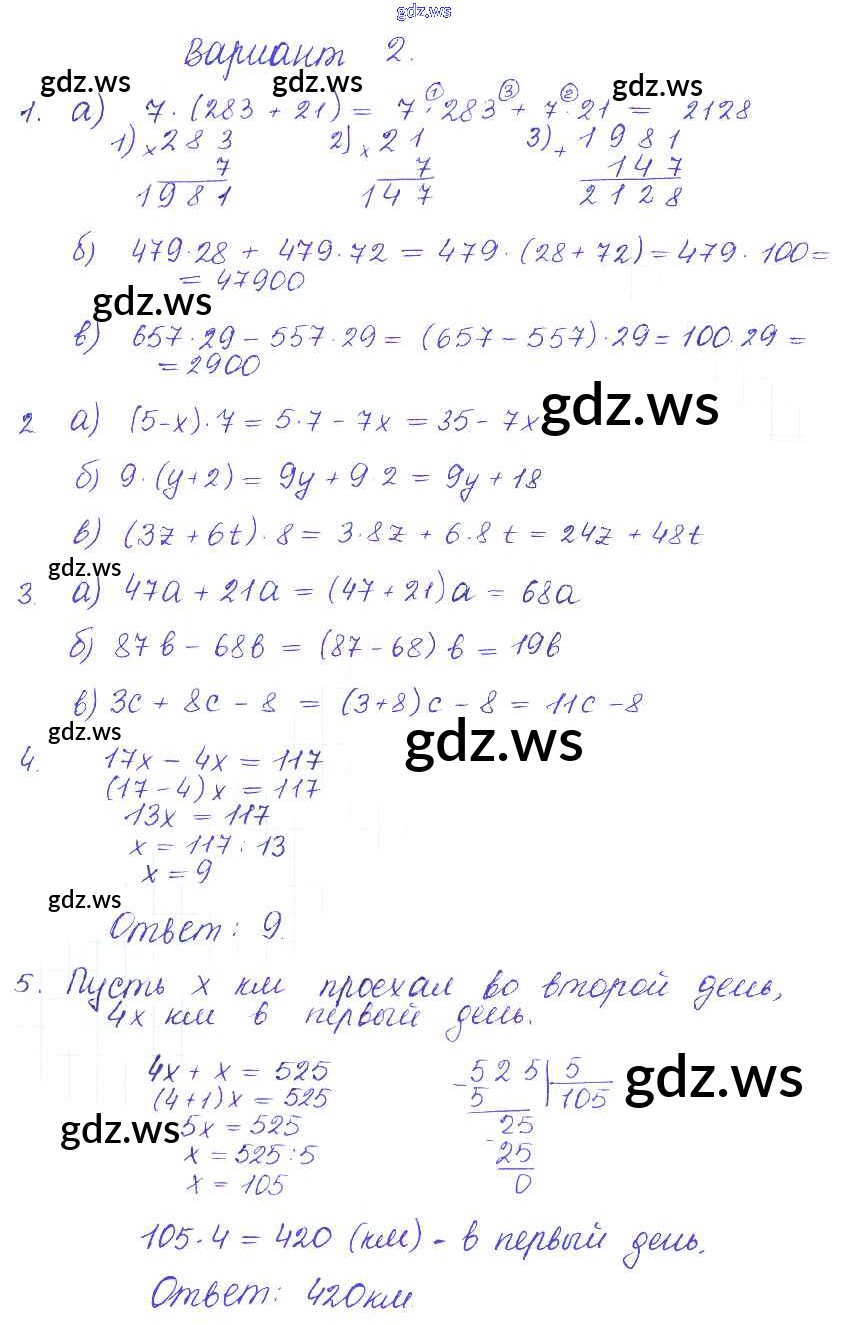 gdz.ws
Вариант 2.
gdz.ws gdz.ws gdz.ws
1. а) 7·(283 + 21) = 7·283 + 7·21 = 2128
① ③ ②
1) × 283 2) × 21 3) + 1981
7 7 147
1981 147 2128
б) 479·28 + 479·72 = 479·(28+72) = 479·100=
= 47900
gdz.ws
в) 657·29 – 557·29 = (657 – 557)·29 = 100·29 =
= 2900
gdz.ws
2 а) (5-x)·7 = 5·7 – 7x = 35 – 7x
б) 9·(y+2) = 9y + 9 2 = 9y + 18
в) (3z + 6t)·8 = 3·8z + 6·8 t = 24z + 48t
gdz.ws
3. а) 47a + 21a = (47 + 21)a = 68a
б) 87 b – 68b = (87 – 68) b = 19b
в) 3c + 8c – 8 = (3+8)c – 8 = 11c – 8
gdz.ws gdz.ws
4. 17x – 4x = 117
(17 – 4)x = 117
13x = 117
x = 117 : 13
x = 9
gdz.ws
Ответ: 9.
5. Пусть x км проехал во второй день,
4x км в первый день.
4x + x = 525 – 525 | 5
(4+1)x = 525 5 105
gdz.ws
gdz.ws
5x = 525 25
x = 525 : 5 – 25
x = 105 0
105·4 = 420 (км) – в первый день.
Ответ: 420км